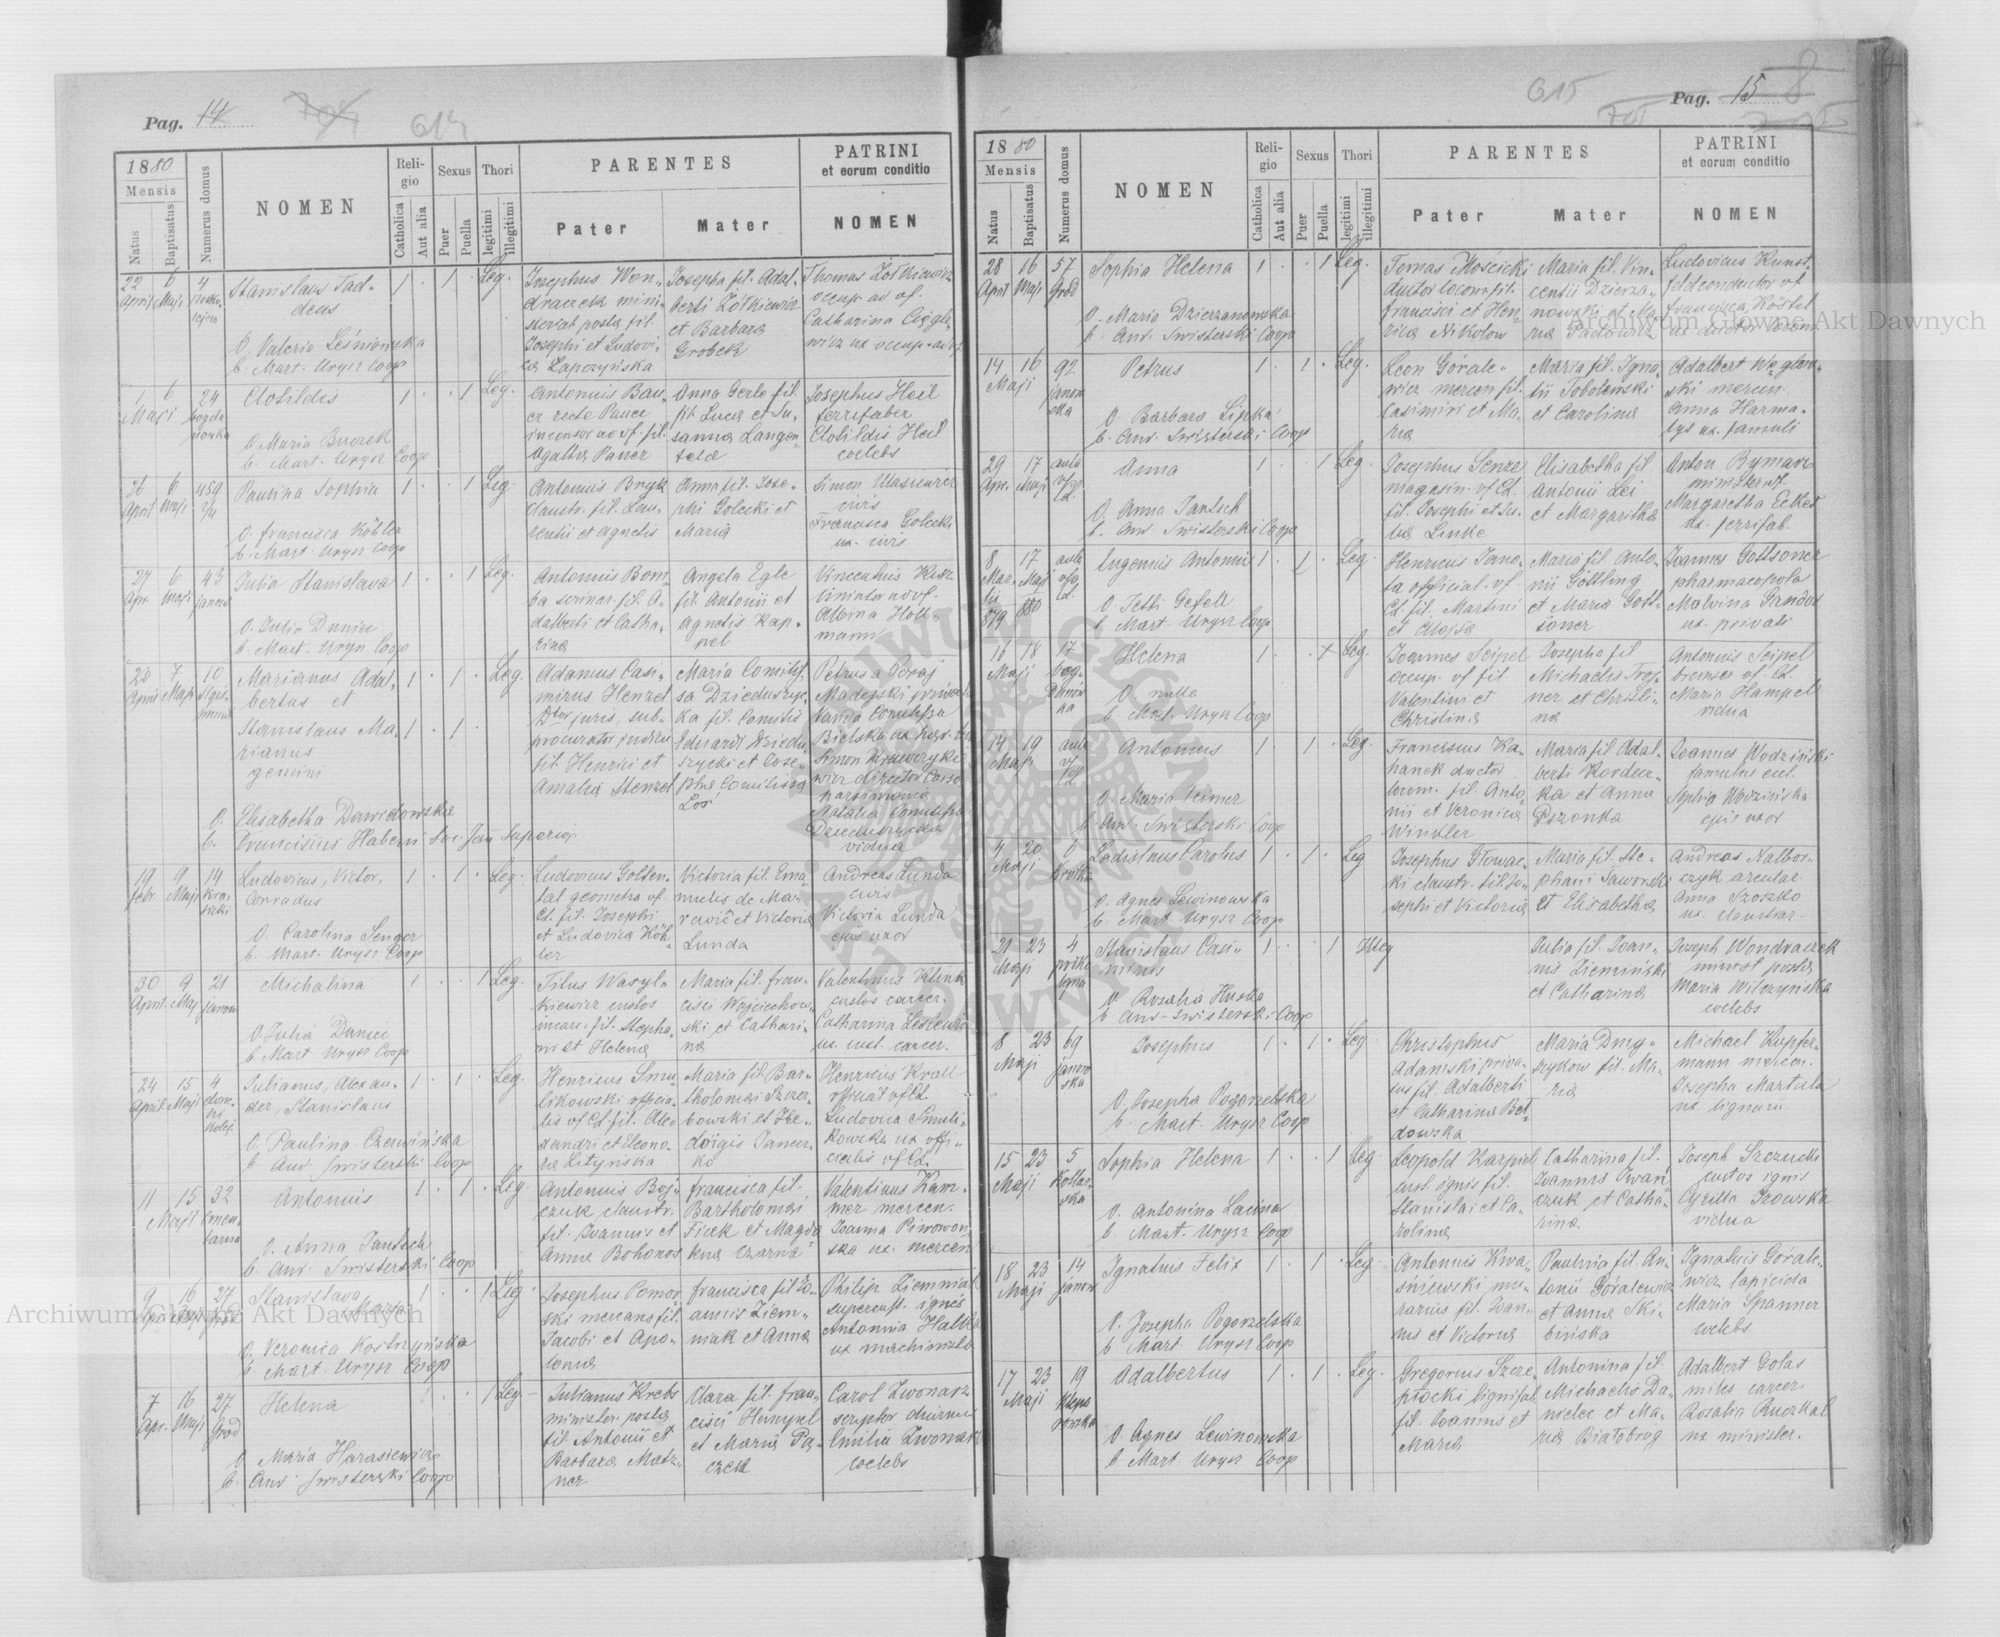 Pag. 14
614
1880
Mensis
Natus
Baptisatus
Numerus domus
NOMEN
Religio
Catholica
Aut alia
Sexus
Puer
Puella
Thori
legitimi
illegitimi
PARENTES
Pater
Mater
PATRINI
et eorum conditio
NOMEN
22 April 6 Maji 4
Stanislaus Tad-
deus
O. Valeria Leśniowska
b. Mart. Urysz Coop
1 . 1 . Leg.
Josephus Won-
draczek mini-
sterial posta fil.
Josephi et Ludovi-
ca Łapczyńska
Josepha fil. Adal-
berti Żółkiewicz
et Barbara
Grobek
Thomas Żółkiewicz
occup. ad vf.
Catharina
1 6 Maji 24
Clotildis
O. Maria
b. Mart. Urysz Coop
1 . . 1 Leg.
Antonius Bau-
er recte Pauer
incensor ad vf. fil.
Agatha Pauer
Anna Gerlo fil
fil. Luca et Su-
sanna Langen-
Josephus Heil
ferrifaber
Clotildis Heil
coelebs
26 April 6 Maji 459 2/4
Paulina Sophia
O. Francisca Köhler
b. Mart. Urysz Coop
1 . . 1 Leg.
Antonius Bryk
claustr. fil. Lau-
rentii et Agnetis
Anna fil. Jose-
phi Golecki et
Maria
Simon Wasiewicz
civis
Francisca Golecki
ux. civis
27 Apr. 6 Maji 43
Julia Stanislava
O. Julia Duniec
b. Mart. Urysz Coop
1 . . 1 Leg.
Antonius Bom-
ba scrinar. fil. A-
dalberti et Catha-
rina
Angela Egle
fil. Antonii et
Agnetis Kap-
pel
Vincentius Kisz
Albina Hoff-
mann
22 April 7 Maji 10
Marianus Adal-
bertus et
Stanislaus Ma-
rianus
gemini
O. Elisabetha Dawidowska
b. Franciscus Haberni Soc. Jesu Superior
1 . 1 . Leg.
Adamus Casi-
mirus Henzel
Dtor juris, sub-
procurator judicii
fil. Henrici et
Amalia Stenzel
Maria Comitis-
sa Dzieduszyc-
ka fil. Comitis
Eduardi Dziedu-
szycki et Jose-
pha Comitissa
Łoś
Petrus a Poraj
Madejski
Vanda Comitissa
Bielska
Simon Krawczyki-
wicz director Cassa
parsimonia
Natalia Comitissa
Dzieduszycka
vidua
19 Febr. 9 Maji 14
Ludovicus, Victor,
Conradus
O. Carolina Senger
b. Mart. Urysz Coop
1 . 1 . Leg.
Ludovicus Golten-
tal geometra vf.
Cl. fil. Josephi
et Ludovica Köh-
ler
Victoria fil. Ema-
nuelis de Mari
et Victoria
Lunda
Andreas Lunda
civis
Victoria Lunda
ejus uxor
30 April 9 Maj 21
Michalina
O. Julia Duniec
b. Mart Urysz Coop
1 . . 1 Leg.
Titus Wasyl-
kiewicz custos
carcer. fil. Stepha-
ni et Helena
Maria fil. Fran-
cisci Wojciechow-
ski et Cathari-
na
Valentinus Klink
custos carcer.
Catharina
ux. cust. carcer.
24 April 15 Maji 4
Julianus, Alexan-
der, Stanislaus
O. Paulina Czerwińska
b. Ant. Swisterski Coop
1 . 1 . Leg.
Henricus Smu-
likowski officia-
lis vf Cl fil. Alex-
andri et Eleono-
ra Lityńska
Maria fil. Bar-
tholomai Szczer-
bowski et He-
dwigis Jancur-
ko
Henricus Kroll
official vf Cl
Ludovica Smuli-
kowska ux offi-
cialis vf Cl.
11 15 Maji 32
Antonius
O. Anna Jantsch
b. Ant. Swisterski Coop
1 . 1 . Leg.
Antonius Boj-
czuk claustr.
fil. Joannis et
Anna Bohonos
Francisca fil.
Bartholomai
Ficek et Magda-
lena Czarna
Valentinus Kam-
mer mercen.
Joanna Piwowon-
ska ux. mercen
9 Apr. 16 Maji 27 Grod
Stanislava
Maria
O. Veronica Kostrzyńska
b. Mart. Urysz Coop
1 . . 1 Leg.
Josephus Pomor-
ski mercans fil.
Jacobi et Apo-
lonia
Francisca fil Jo-
annis Ziem-
niak et Anna
Philip Ziemniak
supercust. ignis
Antonina Halka
ux machinista
7 Apr. 16 Maji 27 Grod
Helena
O. Maria Harasiewicz
b. Ant. Swisterski Coop
1 . . 1 Leg.
Julianus Krebs
minister. posta
fil. Antonii et
Barbara Matz-
ner
Clara fil. Fran-
cisci Hünypel
et Maria Pa-
czek
Carol Zwonarz
scriptor diurnus
Emilia Zwonarz
coelebs
Pag. 15
615
1880
Mensis
Natus
Baptisatus
Numerus domus
NOMEN
Religio
Catholica
Aut alia
Sexus
Puer
Puella
Thori
legitimi
illegitimi
PARENTES
Pater
Mater
PATRINI
et eorum conditio
NOMEN
28 April 16 Maji 57 Grod
Sophia Helena
O. Maria Dzierzanowska
b. Ant. Swisterski Coop
1 . . 1 Leg.
Tomas Mościcki
ductor locom fil.
Francisci et Hen-
rica Nikolow
Maria fil. Vin-
centii Dzierża-
nowski et Ma-
ria Padowicz
Ludovicus Kunst-
feld conductor vf
Francisca Köstel
ux. duct. locom.
14 16 Maji 92 janowska
Petrus
O. Barbara Lipka
b. Ant. Swisterski Coop
1 . 1 . Leg.
Leon Górale-
wicz mercen fil.
Casimiri et Ma-
ria
Maria fil. Igna-
tii Tobolewski
et Carolina
Adalbert Węglow-
ski mercen.
Anna Harma-
tys ux. famuli
29 Apr. 17 Maji
Anna
O. Anna Jantsch
b. Ant. Swisterski Coop
1 . . 1 Leg.
Josephus Senze
magasin. vf Cl.
fil. Josephi et Ju-
lia Linke
Elisabetha fil
Antonii Lei
et Margaritha
Anton Rymarz
minister vf.
Margaretha Eckel
ux. ferrifab.
8 Martii 879 17 Maji 880
Eugenius Antonius
O. Tetti Gefell
b. Mart. Urysz Coop
1 . 1 . Leg.
Henricus Jano-
ta official. vf.
Cl. fil. Martini
et Aloysa
Maria fil. Anto-
nii Göttling
et Maria Gott-
soner
Joannes Gottsoner
pharmacopola
Malvina Sandoz
ux. privati
16 18 Maji 17
Helena
O. nulla
b. Mart. Urysz Coop
1 . . x Leg.
Joannes Seipel
occup. vf fil
Valentini et
Christina
Josepha fil
Michaelis Troj-
ner et Christi-
na
Antonius Seipel
Maria Hampel
vidua
14 19 Maji
Antonius
O. Maria Teimer
b. Ant. Swisterski Coop
1 1 . Leg.
Franciscus Ka-
hanek ductor
locom. fil. Anto-
nii et Veronica
Winkler
Maria fil. Adal-
berti Kordec-
ka et Anna
Pszonka
Joannes Wodziński
famulus
Sophia Wodzińska
ejus uxor
4 20 Maji 6
Ladislaus Carolus
O. Agnes Lewinowska
b. Mart. Urysz Coop
1 . 1 . Leg
Josephus Głowac-
ki claustr. fil Jo-
sephi et Victoria
Maria fil. Ste-
phani Jaworski
et Elisabetha
Andreas Nalbor-
czyk arcular
Anna Szoszko
ux. claustrar.
21 23 Maji 4
Stanislaus Casi-
mirus
O. Rosalia Huska
b. Ant. Swisterski Coop
1 . . 1 Illeg
Julia fil. Joan-
nis Ziemiński
et Catharina
Joseph Wondraczek
minist posta
Maria Wilczyńska
coelebs
8 23 Maji 69 janowska
Josephus
O. Josepha Pogorzelska
b. Mart. Urysz Coop
1 . 1 . Leg.
Christophus
Adamski priva-
tus fil. Adalberti
et Catharina Bet-
dowska
Maria Dmy-
szykow fil. Ma-
ria
Michael Kupfer-
mann mercen.
Josepha Martula
ux lignarii
15 23 Maji 5
Sophia Helena
O. Antonina Lacina
b. Mart. Urysz Coop
1 . . 1 Leg.
Leopold Karpiel
cust. ignis fil.
Stanislai et Ca-
rolina
Catharina fil.
Joannis Iwań-
czuk et Catha-
rina
Joseph Szczucki
custos ignis
Cyrilla Izowska
vidua
18 23 Maji 14 janow
Ignatius Felix
O. Josepha Pogorzelska
b. Mart Urysz Coop
1 . 1 . Leg.
Antonius Kwa-
śniewski mu-
rarius fil. Joan-
nis et Victoria
Paulina fil. An-
tonii Góralewicz
et Anna Ski-
bińska
Ignatius Górale-
wicz lapicida
Maria Spanner
coelebs
17 23 Maji 19
Adalbertus
O. Agnes Lewinowska
b. Mart Urysz Coop
1 . 1 . Leg.
Gregorius Szcze-
płocki lignifab
fil. Joannis et
Maria
Antonina fil.
Michaelis Da-
nielec et Ma-
ria Białobrog
Adalbert Golas
miles carcer.
Rosalia Ruczkal
ux minister.
Archiwum Główne Akt Dawnych
Archiwum Główne Akt Dawnych